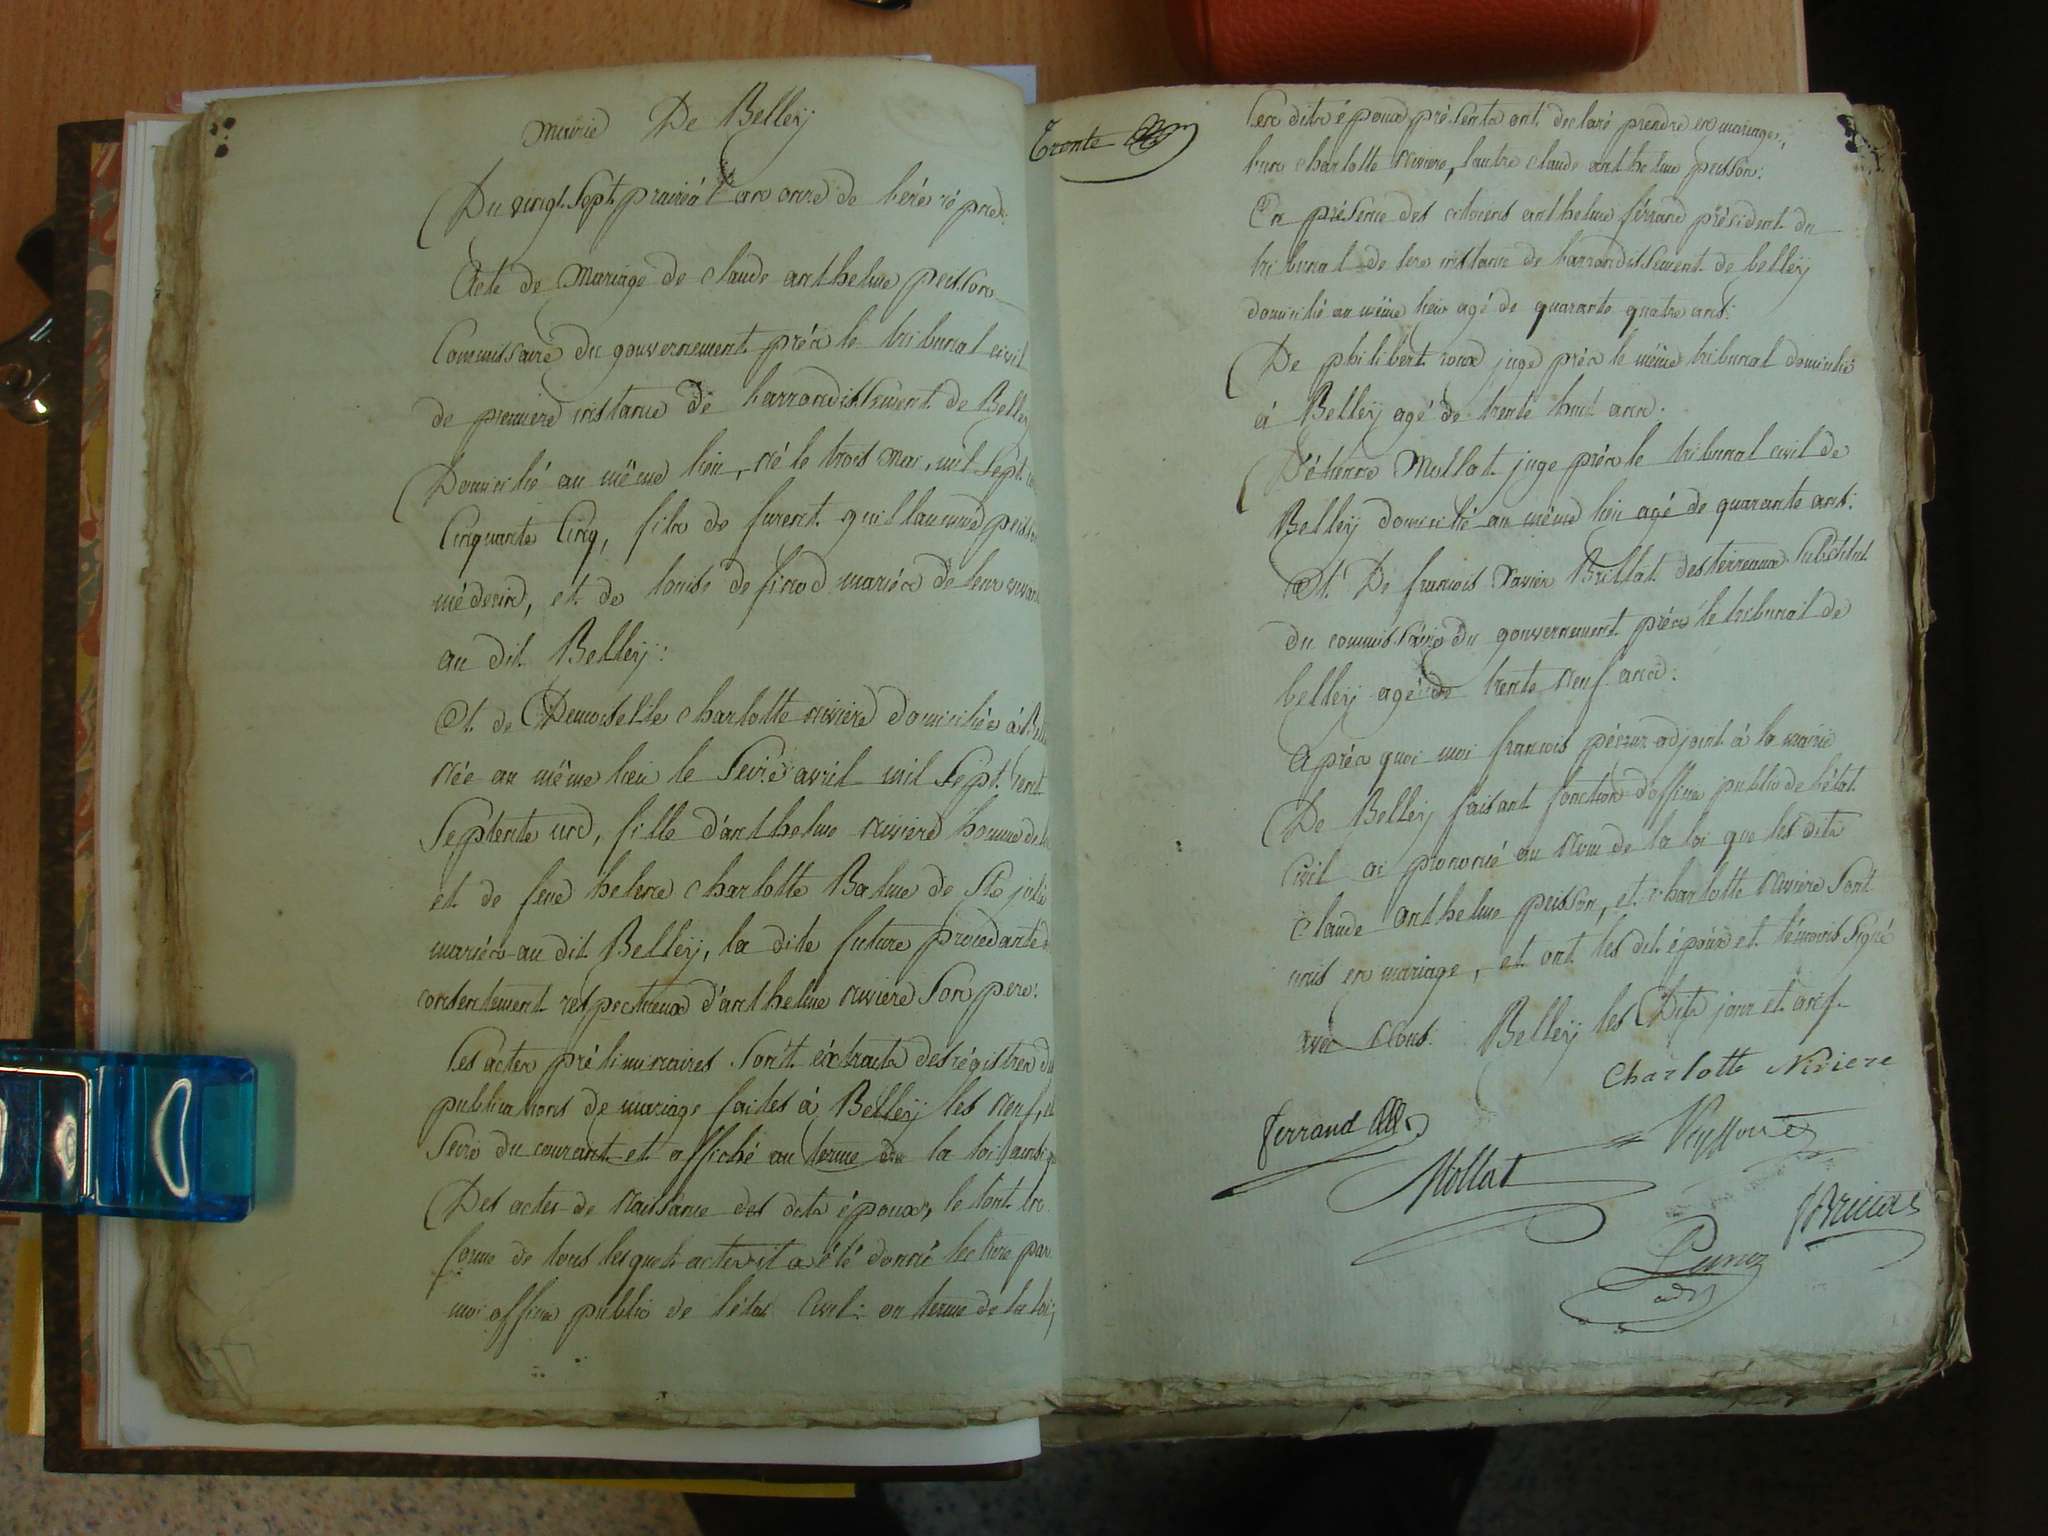 mairie De Belleÿ
Du vingt Sept prairéal an onze de l'ére répue:
Acte de mariage de claude anthelme peisson
Commissaire du gouvernement prés le tribunal civil
de premiere instance de l'arrondissement de Belley
Domicilié au même lieu, né le trois mai, mil Sept
Cinquante Cinq, fils de furent guillaume peisson
médecin, et de louise de sinod mariés de leur vivant
au dit Belleÿ:
Et de Demoiselle charlotte niviere domiciliée à
née au même lieu le Seize avril mil Sept Cent
Septente un, fille d'anthelme niviere homme de
et de feue helene charlotte Balme de Ste julie
mariés au dit Belleÿ, la dite future procedante
consentement respectueux d'anthelme niviere Son pere:
Les actes préliminaires Sont éxtraits des régistres
publications de mariage faites à Belleÿ les neuf,
Seize du courant et affiché au terme de la loi
Des actes de naissance des dits époux, le tout
forme de tous lesquels actes il a été donné lecture par
moi officier public de l'état Civil: au terme de la loi,
Trente
Les dits époux présents ont declaré prendre en mariage,
l'un charlotte niviere, l'autre claude anthelme peisson:
En présence des citoiens anthelme férrand président du
tribunal de 1ere instance de l'arrondissement de belleÿ
domicilié au même lieu agé de quarante quatre ans:
De philibert roux juge prés le même tribunal domicilié
á Belleÿ agé de trente huit ans.
D'étienne Mollet juge prés le tribunal civil de
Belleÿ domicilié au même lieu agé de quarante ans:
Et De francois Xavier Brillat desterreaux Substitut
du commissaire du gouvernement prés le tribunal de
belleÿ agé de trente neuf ans:
Aprés quoi moi francois adjoint á la mairie
De Belleÿ faisant fonction d'officier public de l'état
Civil ai prononcé au nom de la loi que les dits
claude anthelme peisson, et charlotte niviere Sont
unis en mariage, et ont les dit époux et témoins Signé
avec nous. Belleÿ les Dits jour et an
Charlotte Niviere
ferrand
Mollet
Peysson